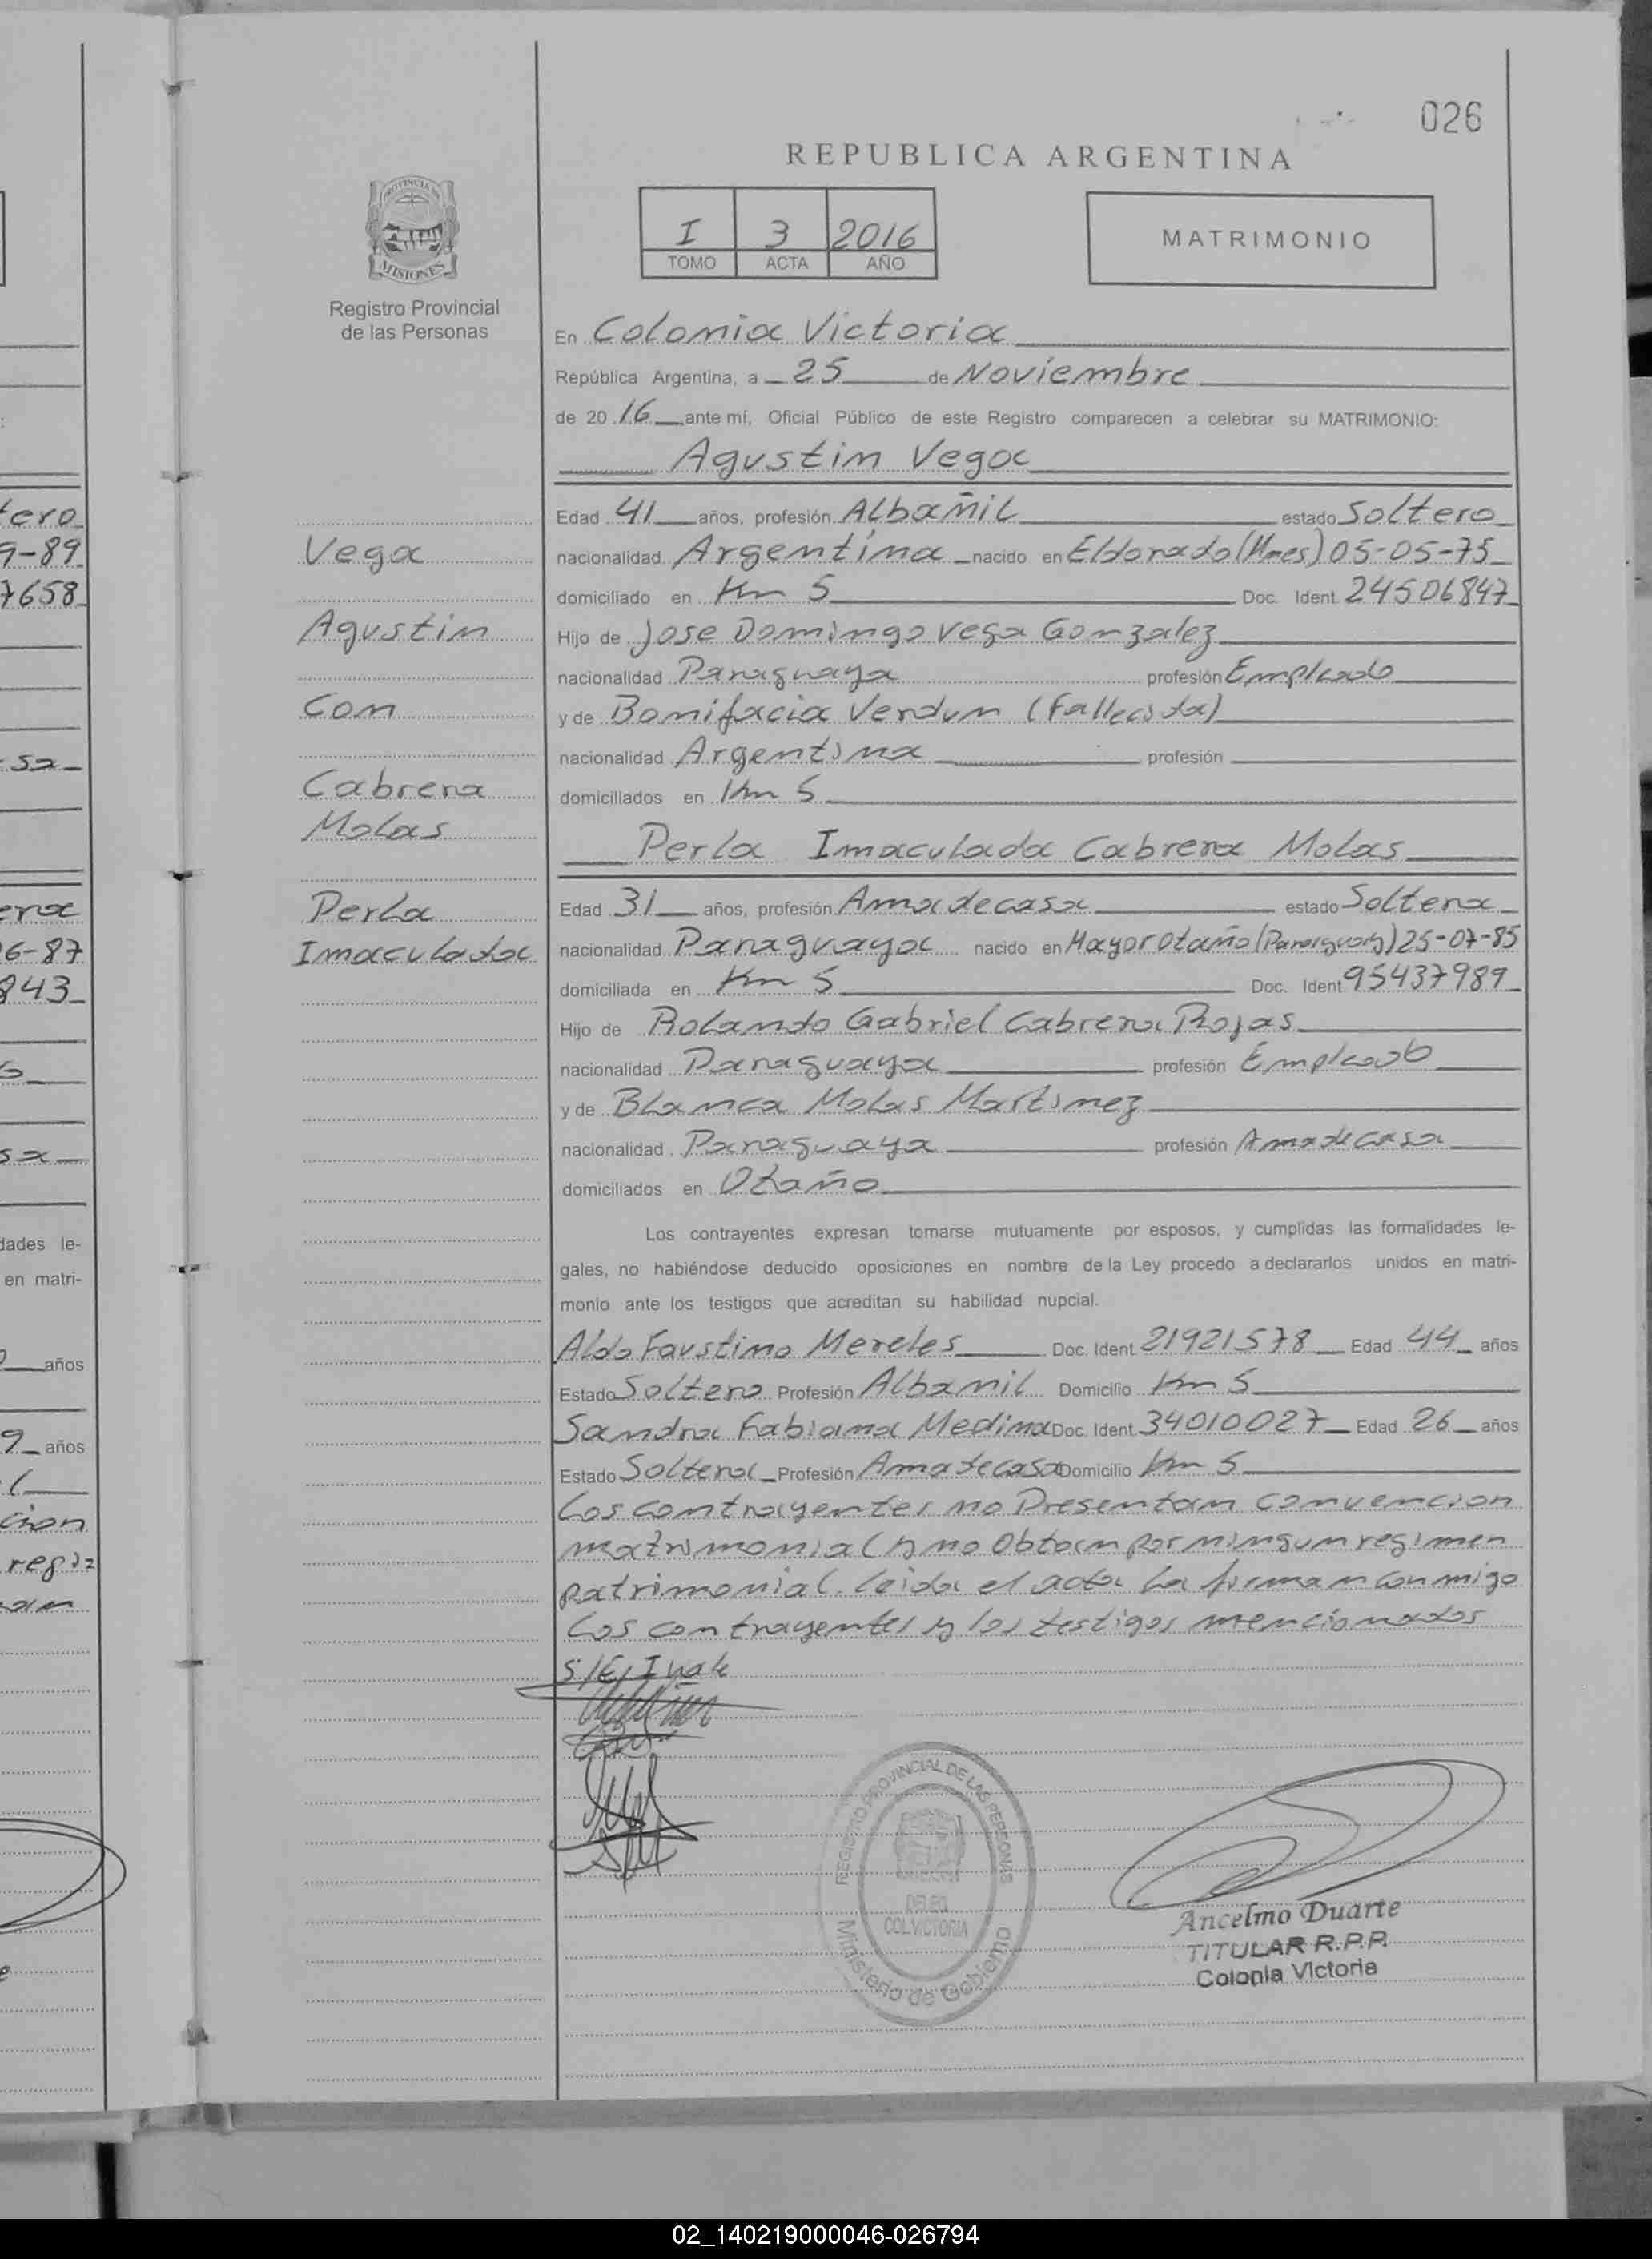 026
REPUBLICA ARGENTINA
PROVINCIA DE
MISIONES
Registro Provincial
de las Personas
I 3 2016
TOMO ACTA AÑO
MATRIMONIO
En Colonia Victoria
República Argentina, a 25 de Noviembre
de 20 16 ante mí, Oficial Público de este Registro comparecen a celebrar su MATRIMONIO:
Agustin Vega
Edad 41 años, profesión Albañil estado Soltero
nacionalidad Argentina nacido en Eldorado (Mnes) 05-05-75
domiciliado en Km 5 Doc. Ident. 24506847
Hijo de Jose Domingo Vega Gonzalez
nacionalidad Paraguaya profesión Empleado
y de Bonifacia Verdun (Fallecida)
nacionalidad Argentina profesión
domiciliados en Km 5
Perla Imaculada Cabrera Molas
Edad 31 años, profesión Ama de casa estado Soltera
nacionalidad Paraguaya nacido en Mayor Otaño (Paraguay) 25-07-85
domiciliada en Km 5 Doc. Ident. 95437989
Hijo de Rolando Gabriel Cabrera Rojas
nacionalidad Paraguaya profesión Empleado
y de Blanca Molas Martinez
nacionalidad Paraguaya profesión Ama de casa
domiciliados en Otaño
Los contrayentes expresan tomarse mutuamente por esposos, y cumplidas las formalidades le-
gales, no habiéndose deducido oposiciones en nombre de la Ley procedo a declararlos unidos en matri-
monio ante los testigos que acreditan su habilidad nupcial.
Aldo Faustino Mereles Doc. Ident. 21921578 Edad 44 años
Estado Soltero Profesión Albanil Domicilio Km 5
Sandra Fabiana Medina Doc. Ident. 34010027 Edad 26 años
Estado Soltera Profesión Ama de casa Domicilio Km 5
Los contrayentes no Presentan convencion
matrimonial y no Obtan por ningun regimen
patrimonial. leida el acta la firman conmigo
Los contrayentes y los testigos mencionados
S/E/ I vale
Vega
Agustin
Con
Cabrera
Molas
Perla
Imaculada
REGISTRO PROVINCIAL DE LAS PERSONAS
DELEG.
COL. VICTORIA
Ministerio de Gobierno
Ancelmo Duarte
TITULAR R.P.P.
Colonia Victoria
tero
9-89
7658
sa
era
6-87
843
sa
dades le-
en matri-
años
9 años
l
cion
regi
an
e
02_140219000046-026794